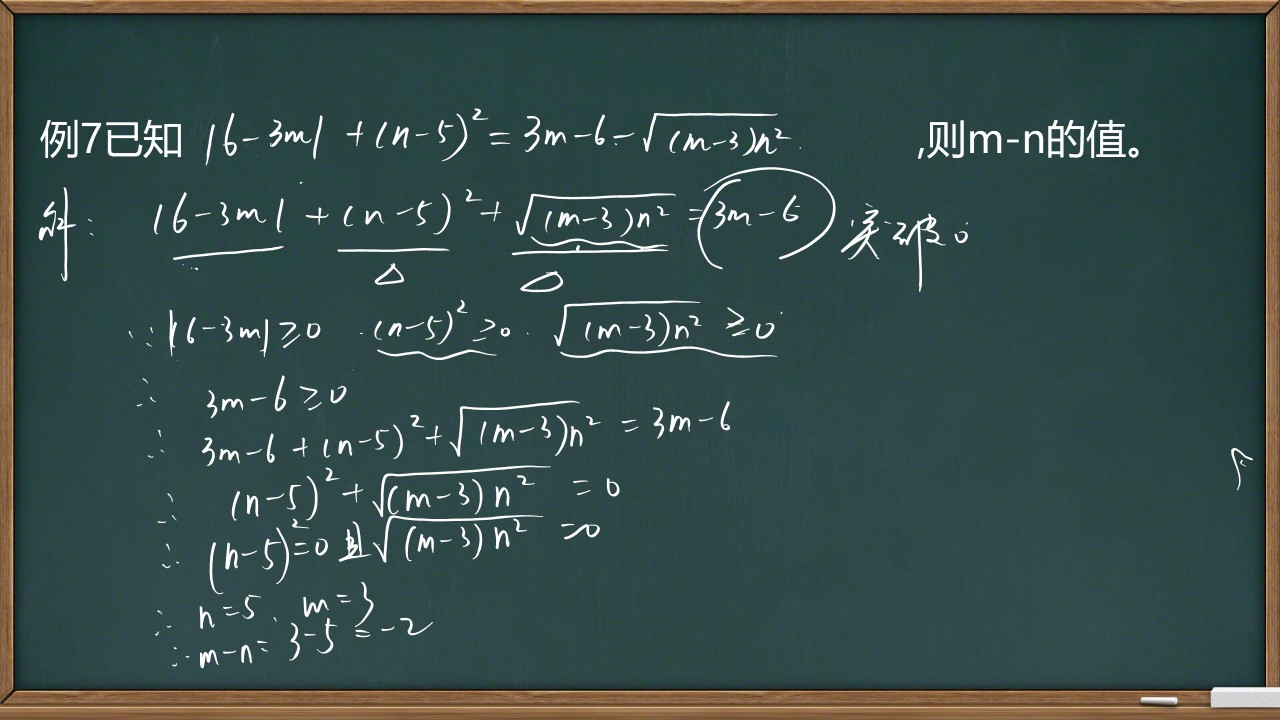 例7已知 |6-3m|+(n-5)²=3m-6-√(m-3)n² ,则m-n的值。
解: |6-3m|+(n-5)²+√(m-3)n²=3m-6 突破。
∵|6-3m|≥0 (n-5)²≥0 √(m-3)n²≥0
∴ 3m-6≥0
∴ 3m-6+(n-5)²+√(m-3)n²=3m-6
∴ (n-5)²+√(m-3)n²=0
∴ (n-5)²=0且√(m-3)n²=0
∴ n=5, m=3
∴ m-n=3-5=-2